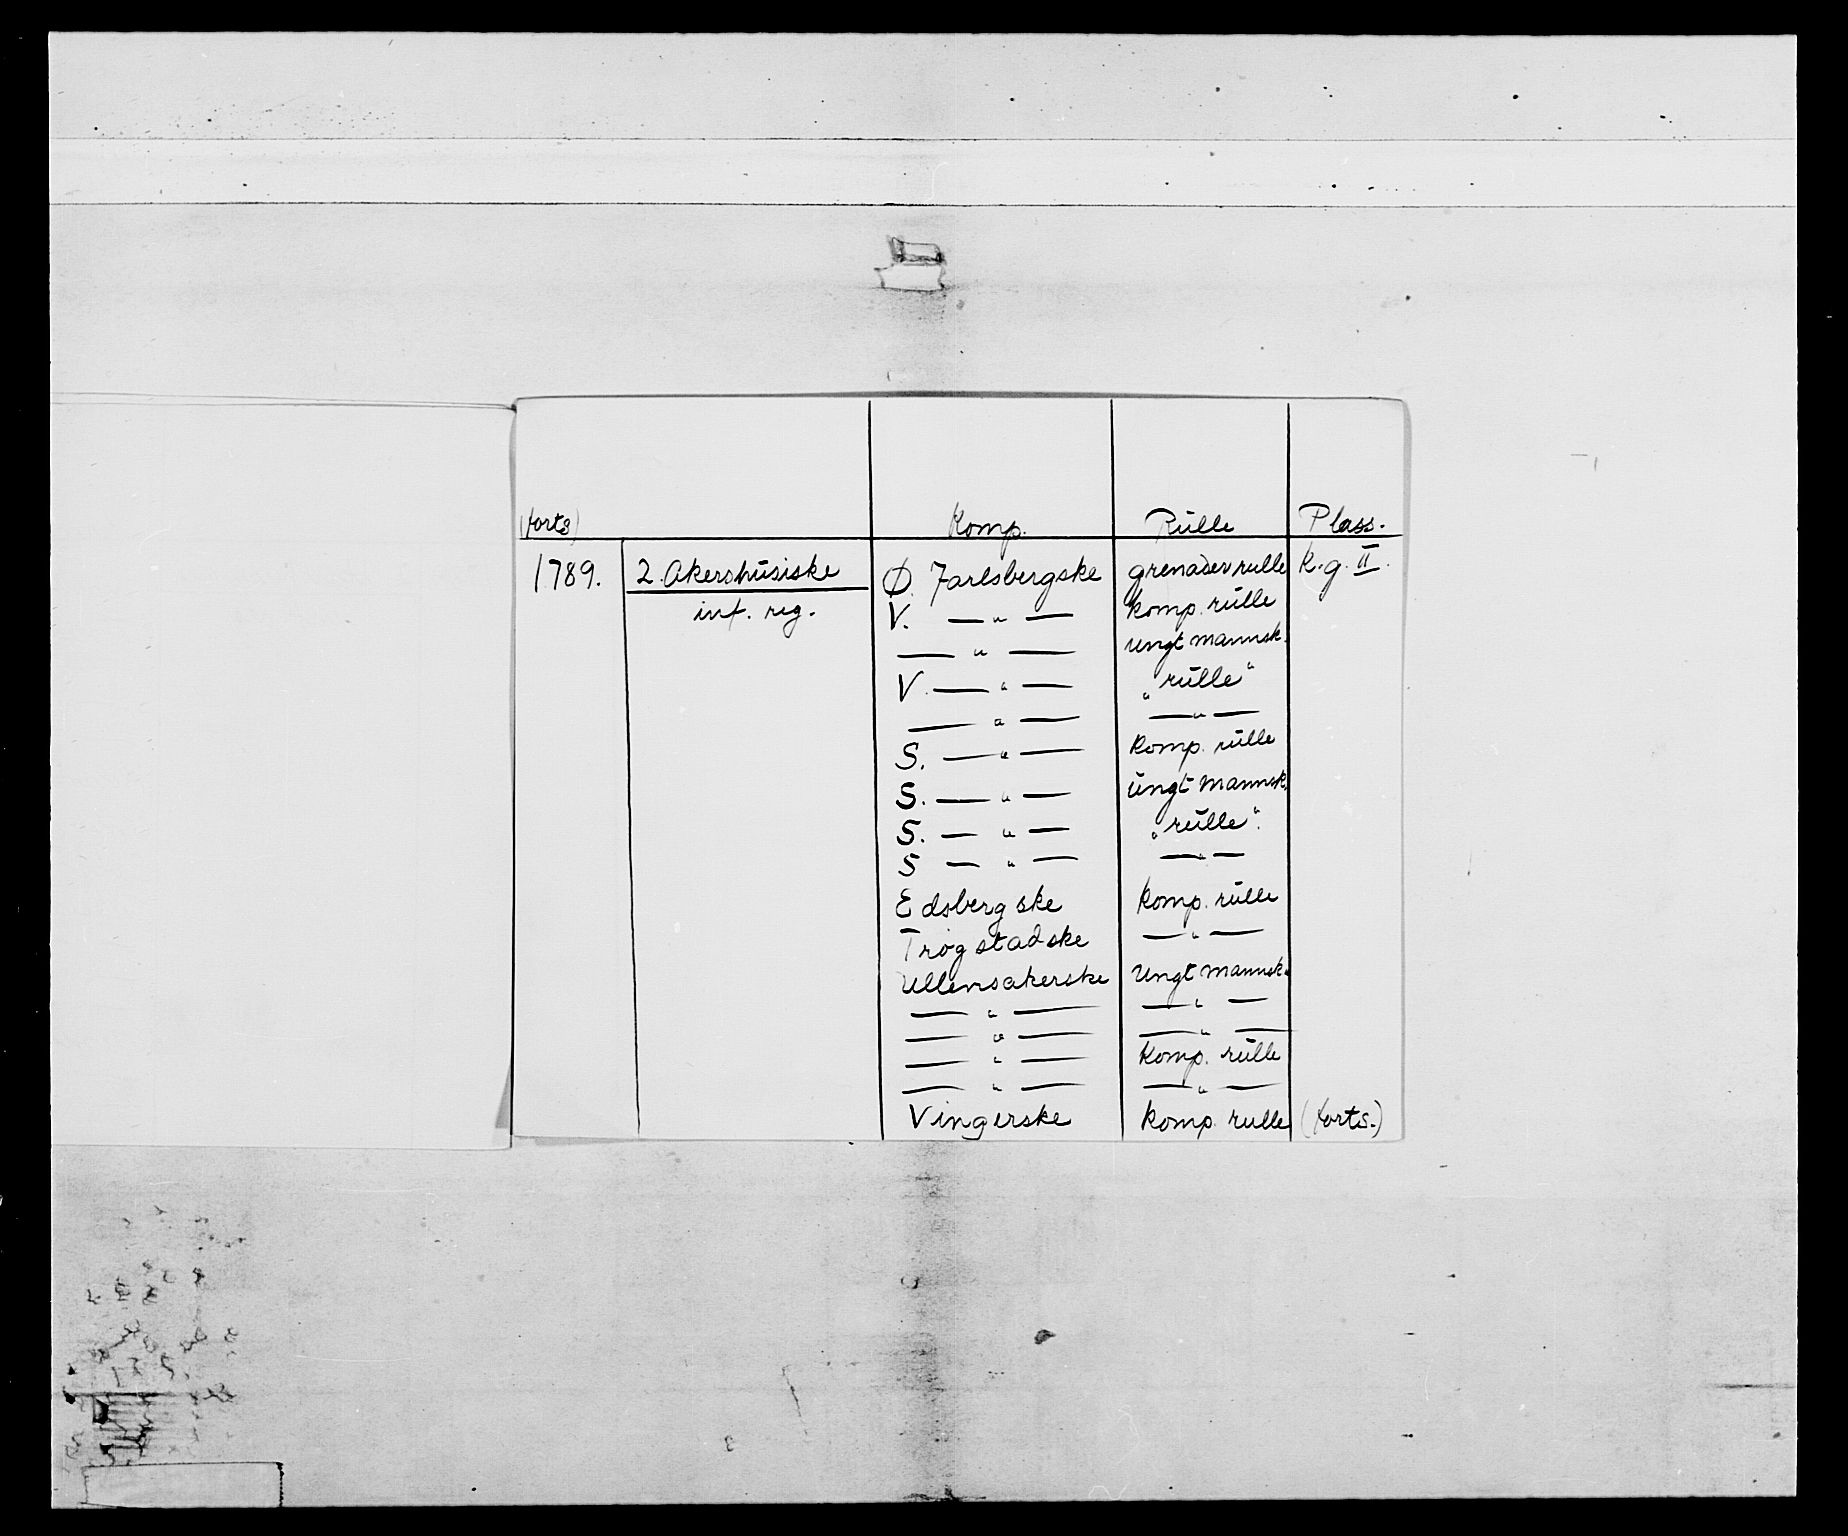 (forts) Komp. Rulle Plass.
1789. 2. Akershusiske Ø. Jarlsbergske grenaderrulle K.g. II.
inf. reg. V. — " — komp. rulle
— " — ungt mannsk.
V. — " — "rulle"
— " — — " —
S. — " — komp. rulle
S. — " — ungt mannsk.
S. — " — "rulle".
S — " — — " —
Edsbergske komp. rulle
Trøgstadske — " —
Ullensakerske ungt mannsk.
— " — — " —
— " — — " —
— " — komp. rulle
— " — — " —
Vingerske komp. rulle (forts.)